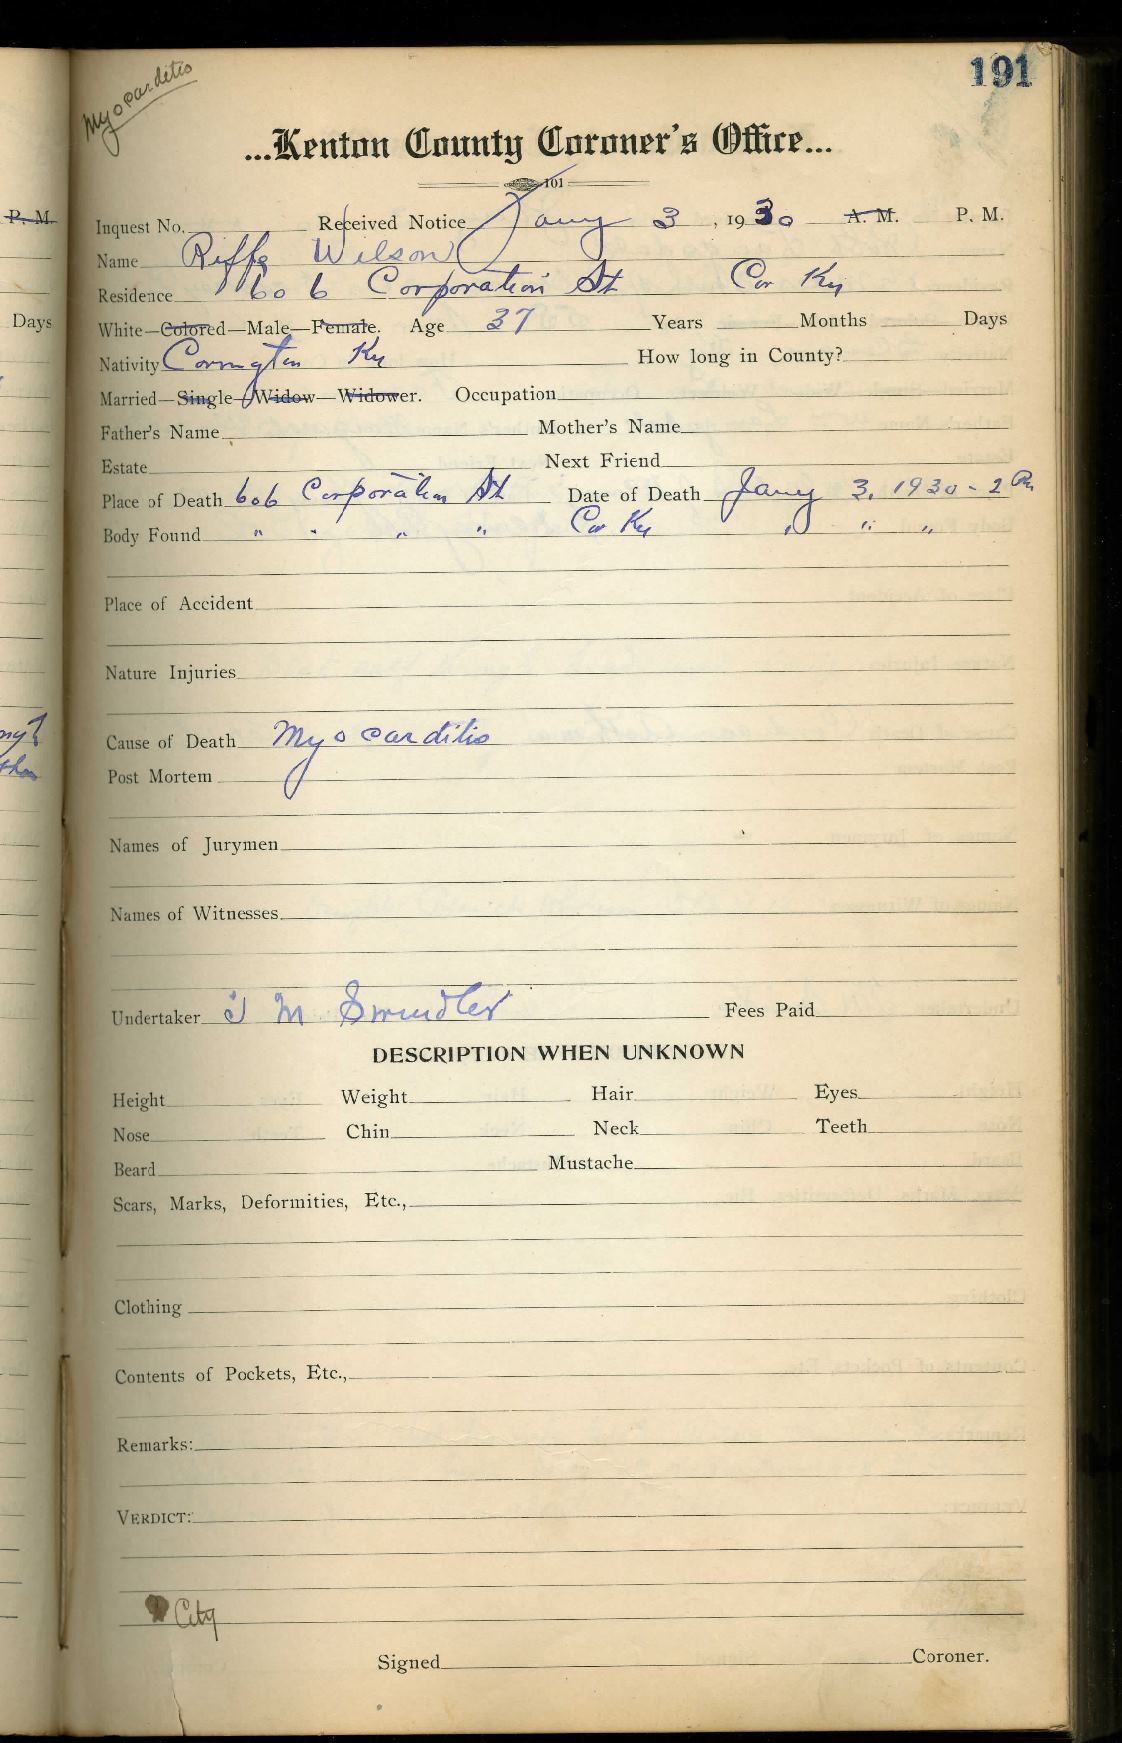 191
Myocarditis
...Kenton County Coroner's Office...
101
P. M. Inquest No. Received Notice Jany 3, 1930 A. M. P. M.
Name Riffe Wilson
Residence 606 Corporation St Cov Ky
Days White—Colored—Male—Female. Age 37 Years Months Days
Nativity Covington Ky How long in County?
Married—Single—Widow—Widower. Occupation
Father's Name Mother's Name
Estate Next Friend
Place of Death 606 Corporation St Date of Death Jany 3, 1930 - 2 Pm
Body Found " " " " Cov Ky " " "
Place of Accident
Nature Injuries
Cause of Death Myocarditis
Post Mortem
Names of Jurymen
Names of Witnesses
Undertaker M Swindler Fees Paid
DESCRIPTION WHEN UNKNOWN
Height Weight Hair Eyes
Nose Chin Neck Teeth
Beard Mustache
Scars, Marks, Deformities, Etc.,
Clothing
Contents of Pockets, Etc.,
Remarks:
VERDICT:
City
Signed Coroner.